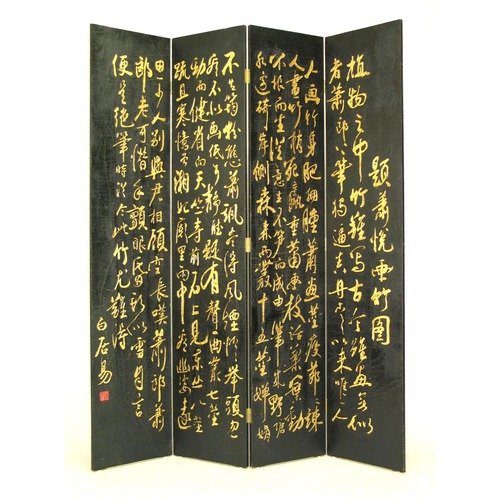 題蕭悅画竹图
植物之中竹難写古今雖画無似
者蕭郎下笔獨逼真丹青以来唯一人
人画竹身肥拥腫蕭画莖瘦節節竦
人畫竹梢死羸垂蕭画枝活葉葉動
不根而生從意生不笋而成由筆成野塘
水邊碕岸側森森两叢十五莖嬋娟
不失筠粉態蕭飒尽得風煙情举頭忽
看不似画低耳静聽疑有聲西叢七莖
劲而健省向天竺寺前石上見东丛八莖
疏且寒憶曾湘妃廟里雨中看幽姿遠
思少人别與君相顧空長嘆蕭郎蕭
郎老可惜手顫眼昏頭雪色自言
便是绝筆時從今此竹尤難得
白居易